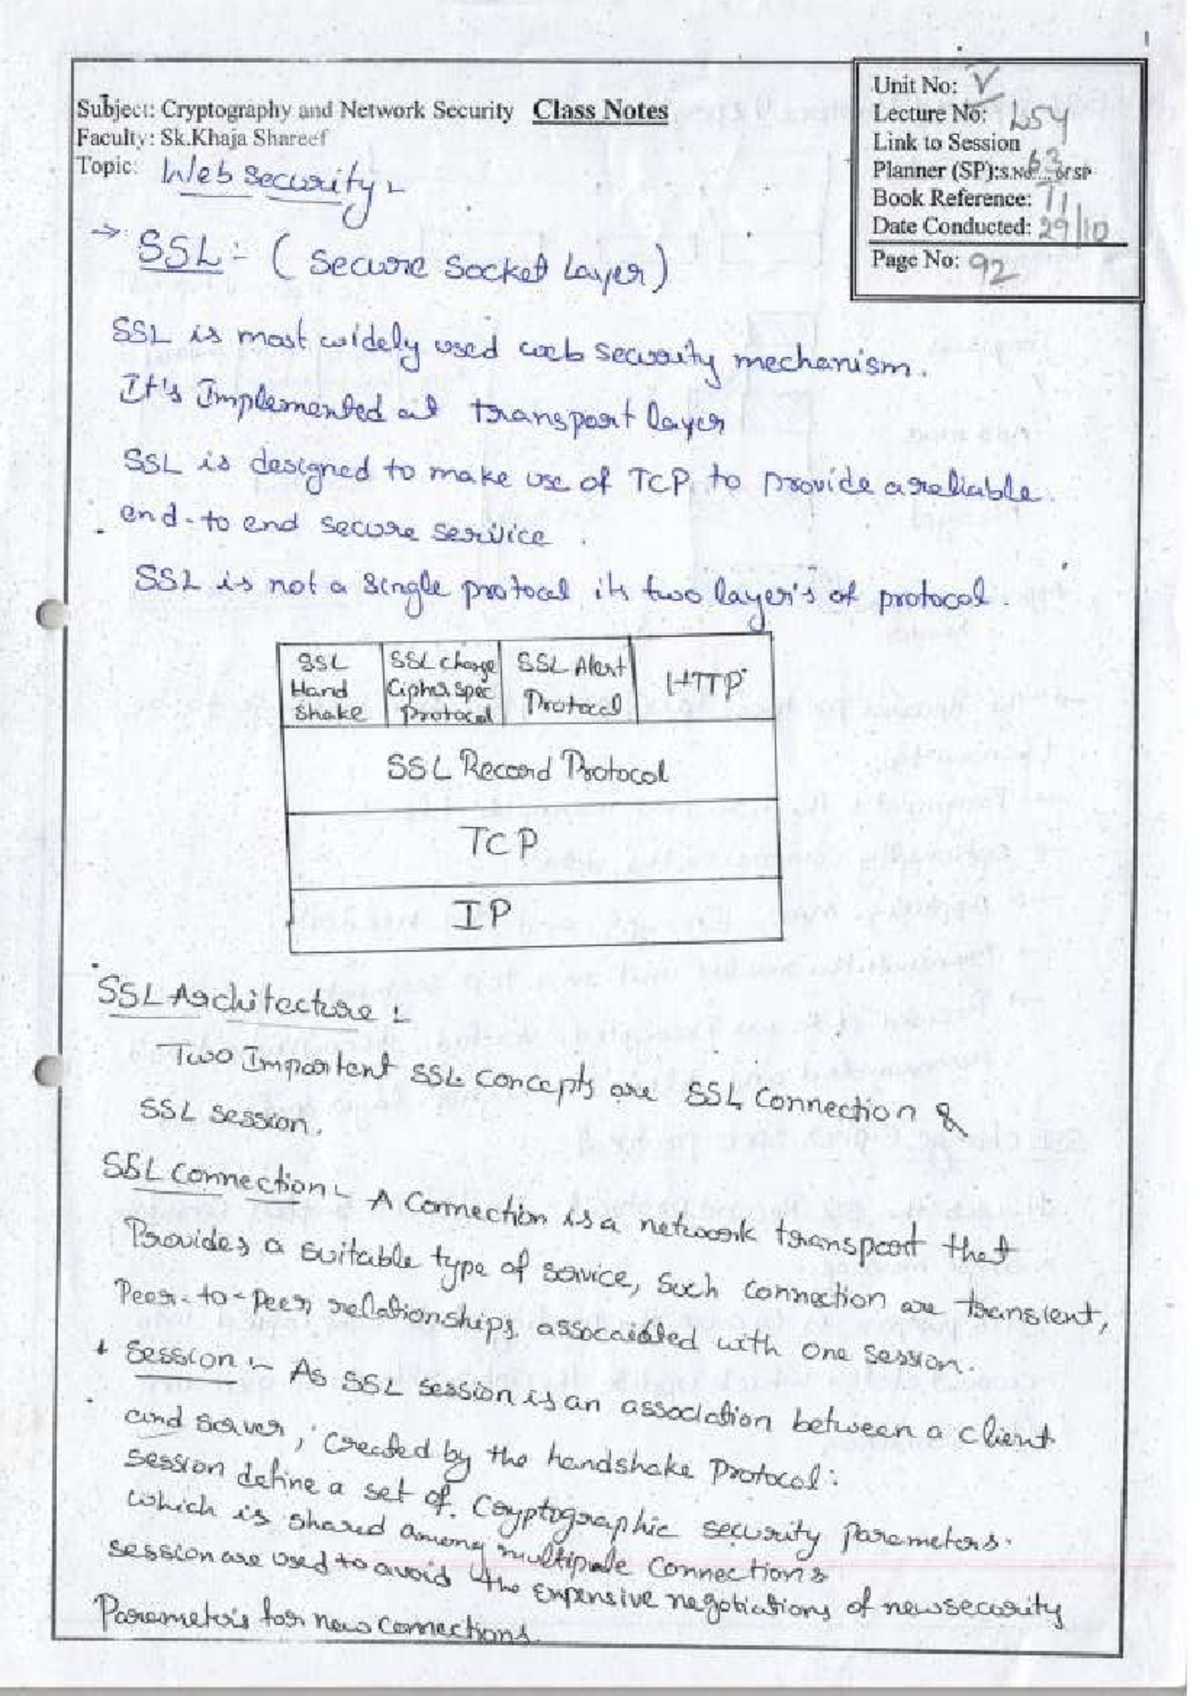 Subject: Cryptography and Network Security Class Notes
Faculty: Sk.Khaja Shareef
Topic: Web security :-
Unit No: V
Lecture No: L54
Link to Session
Planner (SP):S.No 63 of SP
Book Reference: T1
Date Conducted: 29/10
Page No: 92
→ SSL :- ( Secure Socket Layer )
SSL is most widely used web security mechanism.
It's Implemented at transport layer
SSL is designed to make use of TCP to provide a reliable
end-to end secure service .
SSL is not a single protocal its two layer's of protocol.
SSL Hand Shake
SSL Change Cipher Spec Protocol
SSL Alert Protocol
HTTP
SSL Record Protocol
TCP
IP
SSL Architecture :
Two Important SSL Concepts are SSL Connection &
SSL session.
SSL connection :- A Connection is a network transport that
Provides a suitable type of service, such connection are transient,
Peer-to-Peer relationships, assocaiated with one session.
Session :- As SSL session is an association between a client
and server, created by the handshake Protocol:
session define a set of cryptographic security parameters.
which is shared among multipule connections
session are used to avoid the expensive negotiations of new security
Parameters for new connections.